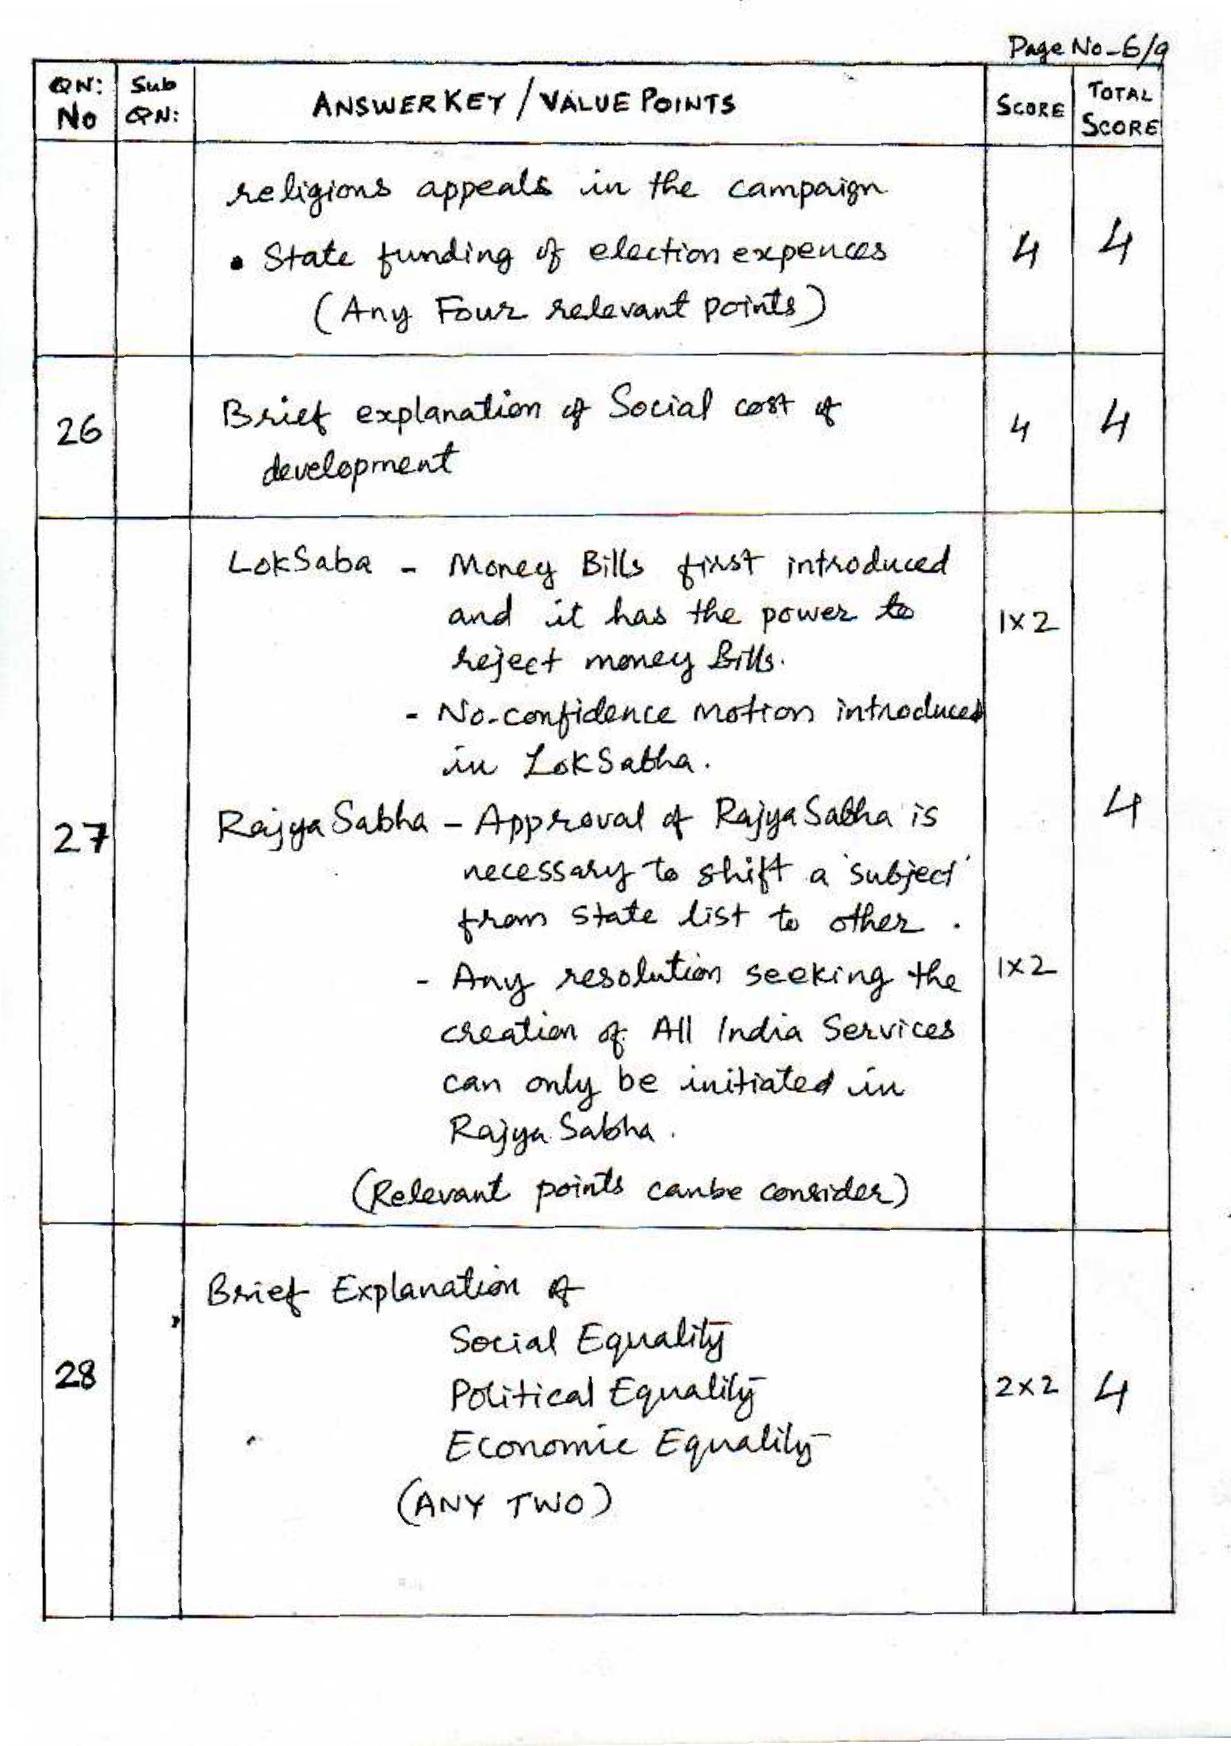 Page No-6/9
QN: No
Sub QN:
ANSWER KEY / VALUE POINTS
SCORE
TOTAL SCORE
religions appeals in the campaign
• State funding of election expences
(Any Four relevant points)
4
4
26
Brief explanation of Social cost of
development
4
4
27
LokSaba - Money Bills first introduced
and it has the power to
reject money Bills.
- No-confidence motion introduced
in LokSabha.
1x2
Rajya Sabha - Approval of Rajya Sabha is
necessary to shift a 'subject'
from state list to other.
- Any resolution seeking the
creation of All India Services
can only be initiated in
Rajya Sabha.
(Relevant points canbe consider)
1x2
4
28
Brief Explanation of
Social Equality
Political Equality
Economic Equality
(ANY TWO)
2x2
4